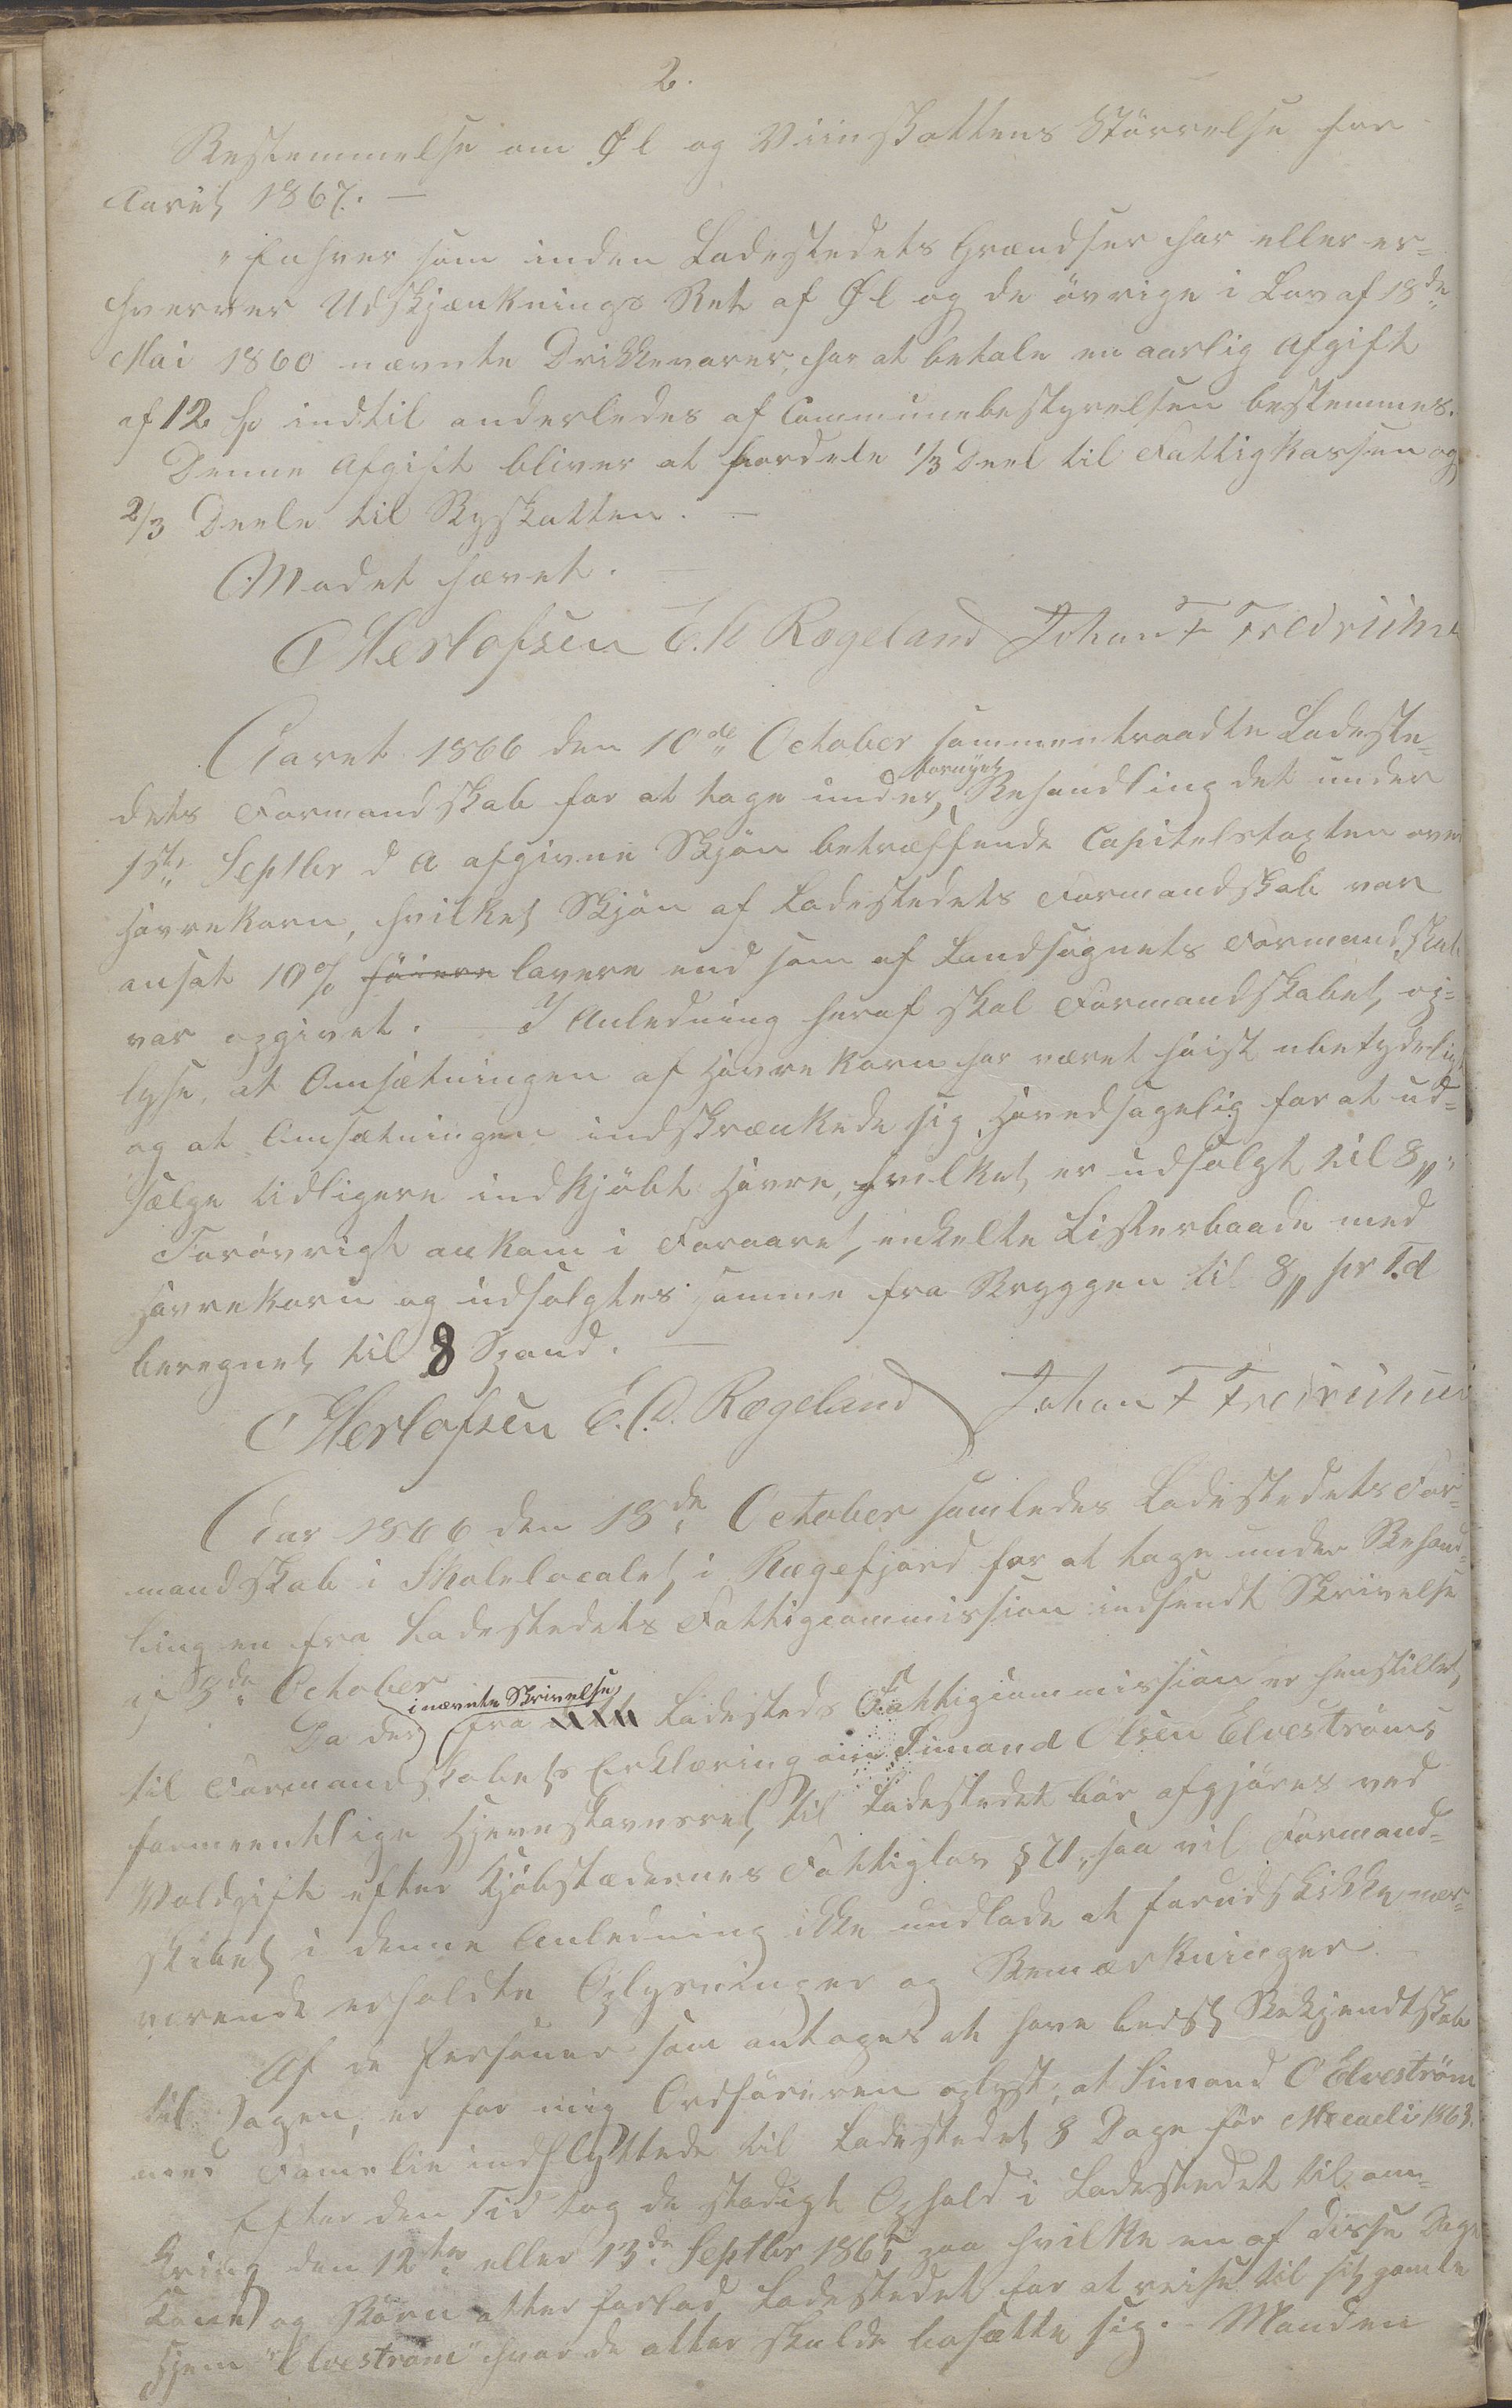 2.
Bestemmelse om Øl og Viinskattens Størrelse for
Aaret 1867. —
"Enhver som inden Ladestedets Grændser har eller er=
hverver Udskjænknings Ret af Øl og de øvrige i Lov af 18de
Mai 1860 nævnte Drikkevarer, har at betale en aarlig Afgift
af 12 Sp indtil anderledes af Communebestyrelsen bestemmes.
Denne Afgift bliver at fordele 1/3 Deel til Fattigkassen og
2/3 Deele til Byskatten. —
Mødet hævet. —
C Herlofsen E. A Rægeland Johan F Fredrichs
Aaret 1866 den 10de October sammentraadte Ladeste=
dets Formandskab for at tage under fornyet Behandling det under
1ste Septbr d A afgivne Skjøn betræffende Capitelstaxten over
Havrekorn, hvilket Skjøn af Ladestedets Formandskab var
ansat 10% høiere lavere end som af Landsognets Formandskab
var opgivet. I Anledning heraf skal Formandskabet op=
lyse, at Omsætningen af Havrekorn har været høist ubetydelig
og at Omsætningen indskrænkede sig hovedsagelig for at ud=
sælge tidligere indkjøbt Havre, hvilket er udsolgt til 8
Forøvrigt ankom i Foraaret enkelte Listerbaade med
Havrekorn og udsolgtes samme fra Bryggen til 8 pr Td
beregnet til 8 Spand. —
C Herlofsen E. A. Rægeland Johan F Fredrichs
Aar 1866 den 18de October samledes Ladestedets For=
mandskab i Skolelocalet i Rægefjord for at tage under Behand=
ling en fra Ladestedets Fattigcommission indsendt Skrivelse
af 3de October
Da der i nævnte Skrivelse fra Ladesteds Fattigcommission er henstillet
til Formandskabets Erklæring om Simand Olsen Elvestrøms
formeentlige Hjemstavnsret til Ladestedet bør afgjøres ved
Voldgift efter Kjøbstædernes Fattiglov § 71, saa vil Formand=
skabet i denne Anledning ikke undlade at forudskikke nær=
værende erholdte Oplysninger og Bemærkninger.
Af de Personer som antages at have bedst Bekjendtskab
til Sagen, er for mig Ordføreren oplyst, at Simand O Elvestrøm
med Familie indflyttede til Ladestedet 8 Dage før Micaeli 1863.
Efter den Tid tog de stadigt Ophold i Ladestedet til om=
kring den 12te eller 13de Septbr 1865 paa hvilke en af disse Dage
Kone og Børn atter forlod Ladestedet for at reise til sit gamle
Hjem "Elvestrøm" hvor de atter skulde bosætte sig. - Manden